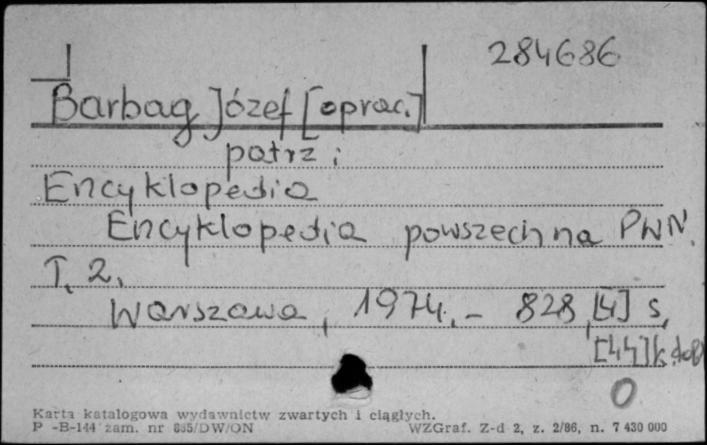 284686
Barbag Józef [oprac.]
patrz:
Encyklopedia
Encyklopedia powszechna PWN.
T. 2.
Warszawa, 1974. - 828, [4] s,
[44] k. tabl
0
Karta katalogowa wydawnictw zwartych i ciągłych.
P -B-144 zam. nr 835/DW/ON WZGraf. Z-d 2, z. 2/86, n. 7 430 000